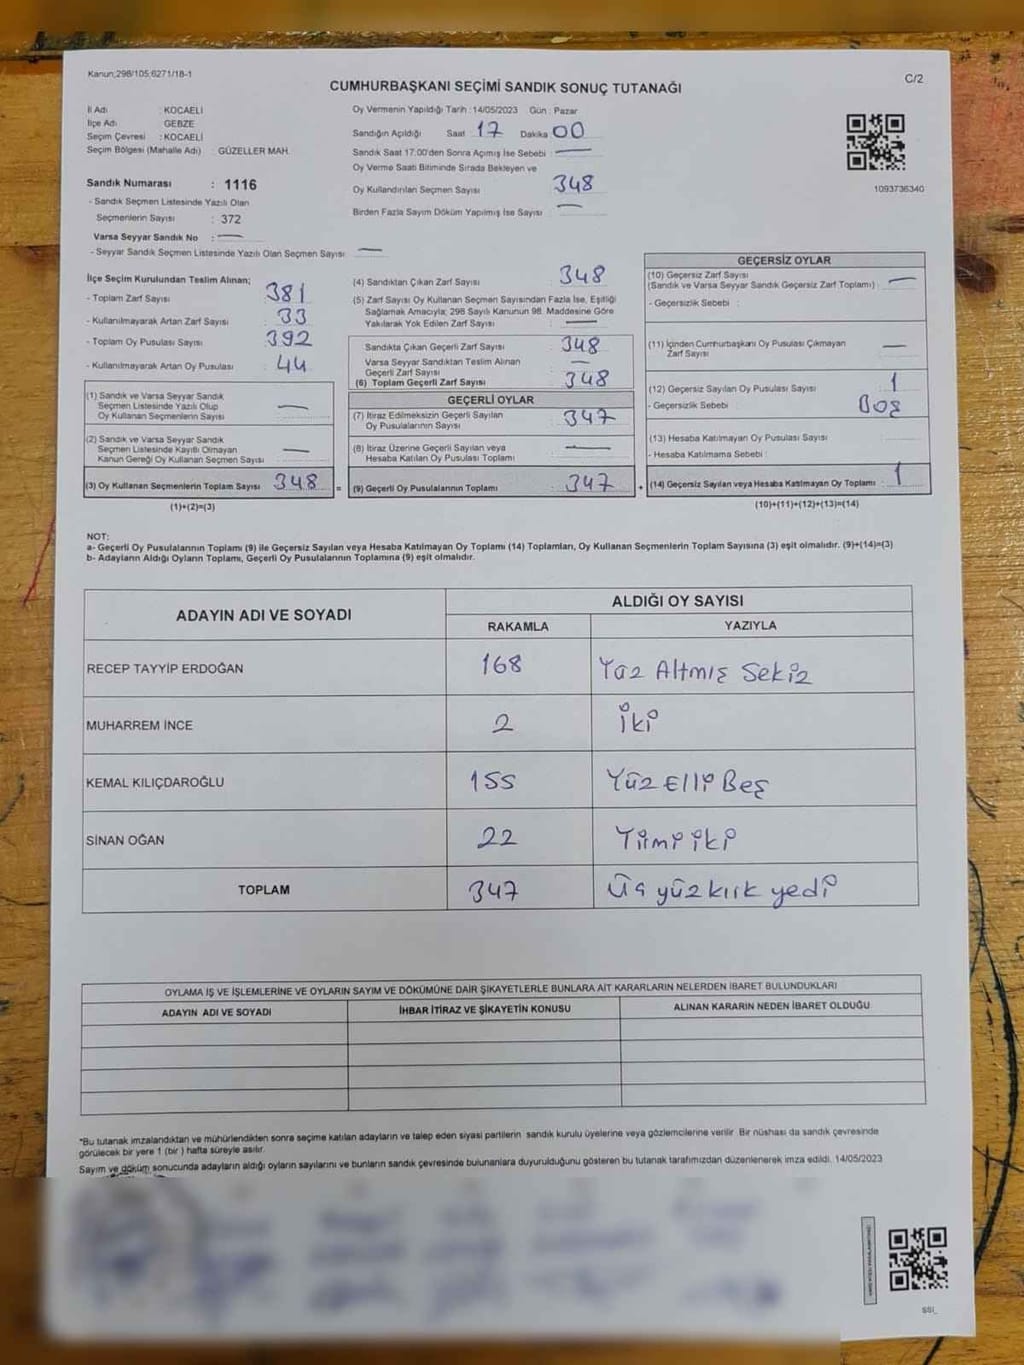 Kanun;298/105;6271/18-1
C/2
CUMHURBAŞKANI SEÇİMİ SANDIK SONUÇ TUTANAĞI
İl Adı : KOCAELİ
İlçe Adı : GEBZE
Seçim Çevresi : KOCAELİ
Seçim Bölgesi (Mahalle Adı) : GÜZELLER MAH.
Sandık Numarası : 1116
- Sandık Seçmen Listesinde Yazılı Olan
Seçmenlerin Sayısı : 372
Varsa Seyyar Sandık No : —
- Seyyar Sandık Seçmen Listesinde Yazılı Olan Seçmen Sayısı —
Oy Vermenin Yapıldığı Tarih : 14/05/2023 Gün : Pazar
Sandığın Açıldığı Saat 17 Dakika 00
Sandık Saat 17:00'den Sonra Açımış İse Sebebi : —
Oy Verme Saati Bitiminde Sırada Bekleyen ve
Oy Kullandırılan Seçmen Sayısı 348
Birden Fazla Sayım Döküm Yapılmış İse Sayısı —
1093736340
İlçe Seçim Kurulundan Teslim Alınan;
- Toplam Zarf Sayısı 381
- Kullanılmayarak Artan Zarf Sayısı : 33
- Toplam Oy Pusulası Sayısı 392
- Kullanılmayarak Artan Oy Pusulası 44
(1) Sandık ve Varsa Seyyar Sandık
Seçmen Listesinde Yazılı Olup
Oy Kullanan Seçmenlerin Sayısı —
(2) Sandık ve Varsa Seyyar Sandık
Seçmen Listesinde Kayıtlı Olmayan
Kanun Gereği Oy Kullanan Seçmen Sayısı —
(3) Oy Kullanan Seçmenlerin Toplam Sayısı 348 =
(1)+(2)=(3)
(4) Sandıktan Çıkan Zarf Sayısı 348
(5) Zarf Sayısı Oy Kullanan Seçmen Sayısından Fazla İse, Eşitliği
Sağlamak Amacıyla; 298 Sayılı Kanunun 98. Maddesine Göre
Yakılarak Yok Edilen Zarf Sayısı —
Sandıkta Çıkan Geçerli Zarf Sayısı 348
Varsa Seyyar Sandıktan Teslim Alınan
Geçerli Zarf Sayısı —
(6) Toplam Geçerli Zarf Sayısı 348
GEÇERLİ OYLAR
(7) İtiraz Edilmeksizin Geçerli Sayılan
Oy Pusulalarının Sayısı 347
(8) İtiraz Üzerine Geçerli Sayılan veya
Hesaba Katılan Oy Pusulası Toplamı —
(9) Geçerli Oy Pusulalarının Toplamı 347 +
GEÇERSİZ OYLAR
(10) Geçersiz Zarf Sayısı
(Sandık ve Varsa Seyyar Sandık Geçersiz Zarf Toplamı) : —
- Geçersizlik Sebebi :
(11) İçinden Cumhurbaşkanı Oy Pusulası Çıkmayan
Zarf Sayısı —
(12) Geçersiz Sayılan Oy Pusulası Sayısı 1
- Geçersizlik Sebebi : Boş
(13) Hesaba Katılmayan Oy Pusulası Sayısı
- Hesaba Katılmama Sebebi :
(14) Geçersiz Sayılan veya Hesaba Katılmayan Oy Toplamı : 1
(10)+(11)+(12)+(13)=(14)
NOT:
a- Geçerli Oy Pusulalarının Toplamı (9) ile Geçersiz Sayılan veya Hesaba Katılmayan Oy Toplamı (14) Toplamları, Oy Kullanan Seçmenlerin Toplam Sayısına (3) eşit olmalıdır. (9)+(14)=(3)
b- Adayların Aldığı Oyların Toplamı, Geçerli Oy Pusulalarının Toplamına (9) eşit olmalıdır.
ADAYIN ADI VE SOYADI ALDIĞI OY SAYISI
RAKAMLA YAZIYLA
RECEP TAYYİP ERDOĞAN 168 Yüz Altmış Sekiz
MUHARREM İNCE 2 İki
KEMAL KILIÇDAROĞLU 155 Yüz Elli Beş
SİNAN OĞAN 22 Yirmi iki
TOPLAM 347 Üç yüz kırk yedi
OYLAMA İŞ VE İŞLEMLERİNE VE OYLARIN SAYIM VE DÖKÜMÜNE DAİR ŞİKAYETLERLE BUNLARA AİT KARARLARIN NELERDEN İBARET BULUNDUKLARI
ADAYIN ADI VE SOYADI İHBAR İTİRAZ VE ŞİKAYETİN KONUSU ALINAN KARARIN NEDEN İBARET OLDUĞU
*Bu tutanak imzalandıktan ve mühürlendikten sonra seçime katılan adayların ve talep eden siyasi partilerin sandık kurulu üyelerine veya gözlemcilerine verilir. Bir nüshası da sandık çevresinde
görülecek bir yere 1 (bir ) hafta süreyle asılır.
Sayım ve döküm sonucunda adayların aldığı oyların sayılarını ve bunların sandık çevresinde bulunanlara duyurulduğunu gösteren bu tutanak tarafımızdan düzenlenerek imza edildi. 14/05/2023